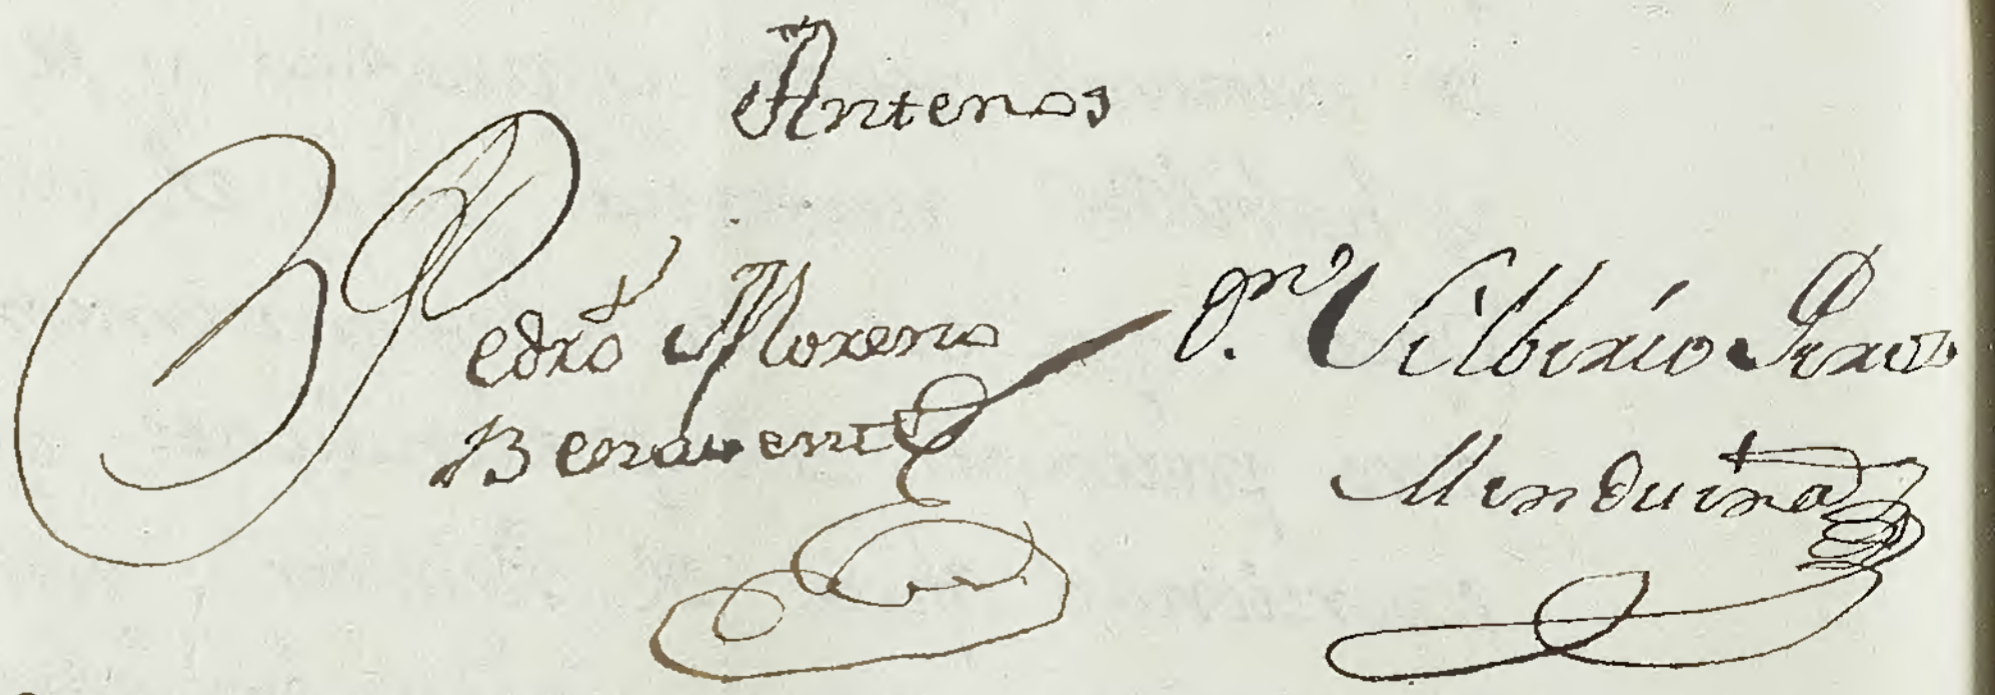 Antenos
Pedro Moreno
Benavente
Silberio
Menduiña